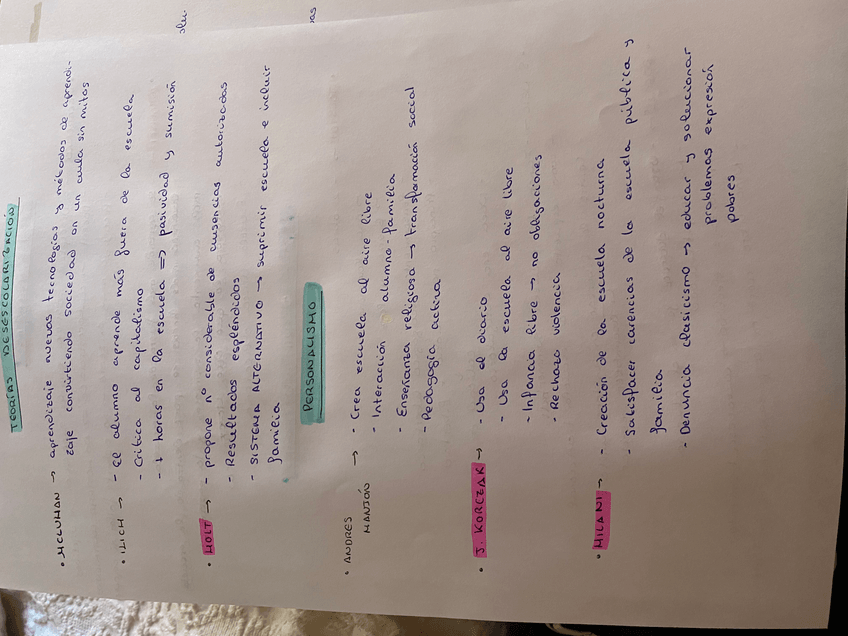 TEORÍAS DESESCOLARIZACIÓN
• MCLUHAN → aprendizaje nuevas tecnologías y métodos de aprendi-
zaje convirtiendo sociedad en un aula sin mitos
• ILICH → - El alumno aprende más fuera de la escuela
- Crítica al capitalismo
- + horas en la escuela => pasividad y sumisión
• HOLT → - propone nº considerable de ausencias autorizadas
- Resultados espléndidos
- SISTEMA ALTERNATIVO → suprimir escuela e incluir
familia
PERSONALISMO
• ANDRES MANJÓN → - Crea escuela al aire libre
- Interacción alumno-familia
- Enseñanza religiosa → transformación social
- Pedagogía activa
• J. KORCZAK → - Usa el diario
- Usa la escuela al aire libre
- Infancia libre → no obligaciones
- Rechazo violencia
• MILANI → - Creación de la escuela nocturna
- Satisfacer carencias de la escuela pública y
familia
- Denuncia clasicismo → educar y solucionar
problemas expresión
pobres